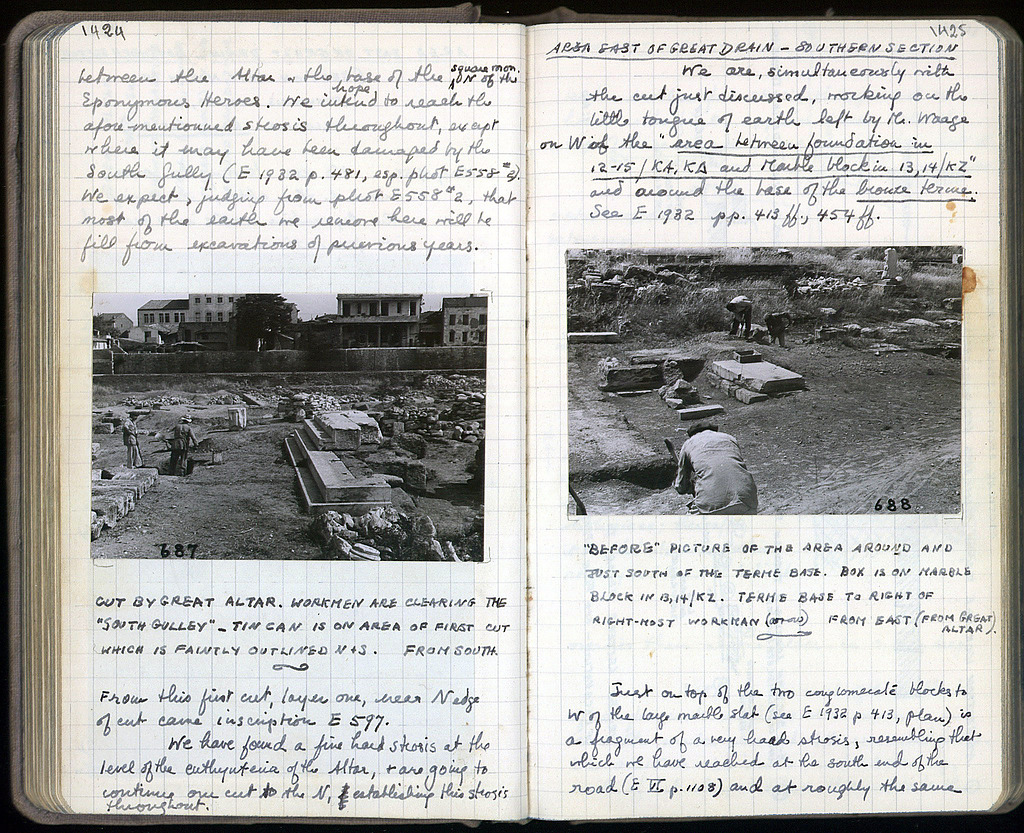 1424
between the Altar & the base of the square mon. N of the
Eponymous Heroes. We hope intend to reach the
afore-mentionned strosis throughout, except
where it may have been damaged by the
South Gully (E 1932 p. 481, esp. phot E558 #2).
We expect, judging from phot E558 #2, that
most of the earth we remove here will be
fill from excavations of previous years.
687
CUT BY GREAT ALTAR. WORKMEN ARE CLEARING THE
"SOUTH GULLEY" - TIN CAN IS ON AREA OF FIRST CUT
WHICH IS FAINTLY OUTLINED N+S. FROM SOUTH.
From this first cut, layer one, near N edge
of cut came inscription E 597.
We have found a fine hard strosis at the
level of the euthynteria of the Altar, & are going to
continue our cut to the N, establishing this strosis
throughout.
1425
AREA EAST OF GREAT DRAIN - SOUTHERN SECTION
We are, simultaneously with
the cut just discussed, working on the
little tongue of earth left by Mr. Waage
on W of the "area between foundation in
12-15/KA, KΔ and Marble block in 13,14/KZ"
and around the base of the bronze terme.
See E 1932 pp. 413 ff., 454 ff.
688
"BEFORE" PICTURE OF THE AREA AROUND AND
JUST SOUTH OF THE TERME BASE. BOX IS ON MARBLE
BLOCK IN 13,14/KZ. TERME BASE TO RIGHT OF
RIGHT-MOST WORKMAN (arrow) FROM EAST (FROM GREAT
ALTAR).
Just on top of the two conglomerate blocks to
W of the large marble slab (see E 1932 p 413, plan) is
a fragment of a very hard strosis, resembling that
which we have reached at the south end of the
road (E VI p. 1108) and at roughly the same